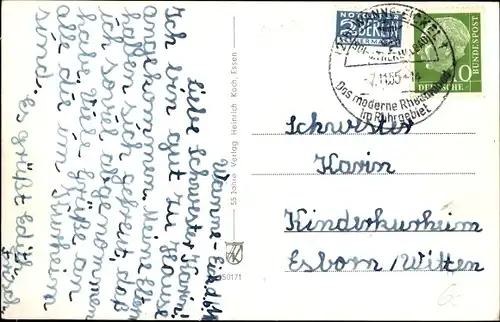 Wanne-Eickel,
Liebe Schwester Karin!
Ich bin gut zu Hause
angekommen. Meine Eltern
haben sich gefreut, daß
ich soviel abgenommen
habe. Viele Grüße an
alle die im Kurheim
sind.
Es grüßt Edith
55 Jahre Verlag Heinrich Koch, Essen
50171
NOTOPFER
2 BERLIN
STEUERMARKE
WANNE-EICKEL 1
Das moderne
im Ruhrgebiet
DEUTSCHE
BUNDESPOST
10
Schwester
Karin
Kinderkurheim
Esborn / Witten